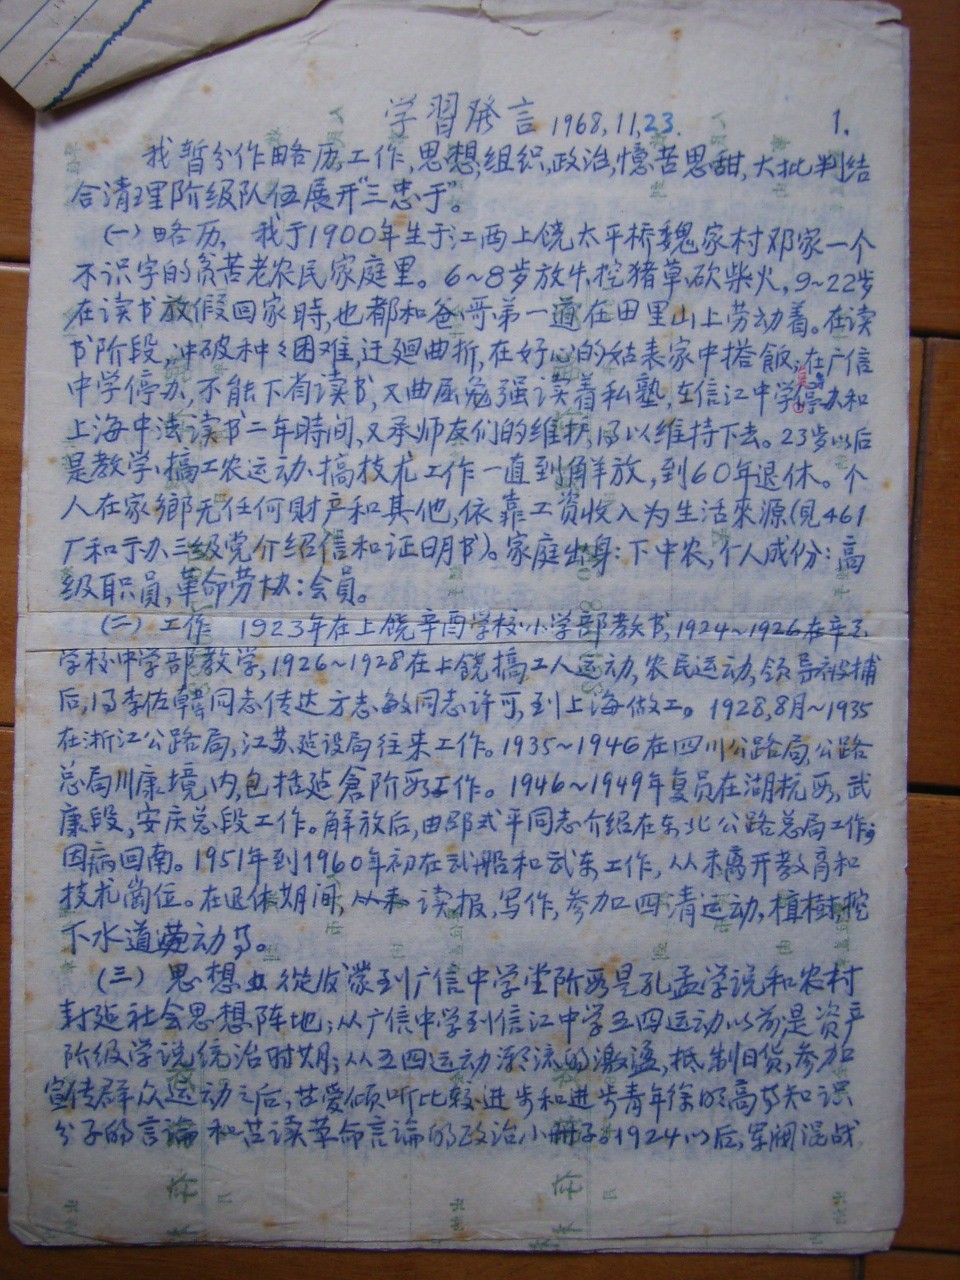 学習発言 1968,11,23. 1.
我暂分作略历,工作,思想,组织,政治,憶苦思甜,大批判结
合清理阶级队伍展开"三忠于"。
(一) 略历, 我于1900年生于江西上饶太平桥魏家村邓家一个
不识字的贫苦老农民家庭里。6~8岁放牛挖猪草砍柴火,9~22岁
在读书放假回家時,也都和爸哥弟一道在田里山上劳动着。在读
书阶段,冲破种々困难,迂廻曲折,在好心的姑表家中搭飯;在广信
中学停办,不能下省读书,又曲屈勉强读着私塾,在信江中学停办和
上海中法读书二年時間,又承师友们的维护,得以维持下去。23岁以后
是教学、搞工农运动、搞技术工作一直到解放,到60年退休。个
人在家鄉无任何財产和其他,依靠工资收入为生活來源(見461
厂和于办三级党介绍信和证明书)。家庭出身:下中农,个人成份:高
级职员,革命劳协:会员。
(二) 工作 1923年在上饶辛酉学校小学部教书,1924~1926在辛酉
学校中学部教学,1926~1928在上饶搞工人运动,农民运动,领导被捕
后,得李佐韓同志传达方志敏同志许可,到上海做工。1928,8月~1935
在浙江公路局,江苏建设局往来工作。1935~1946在四川公路局,公路
总局川康境内,包括建倉阶段工作。1946~1949年复员在湖杭段,武
康段,安庆总段工作。解放后,由邵式平同志介绍在东北公路总局工作;
因病回南。1951年到1960年初在武船和武东工作,从未离开教育和
技术崗位。在退休期间,从未 读报,写作,参加四清运动,植樹,挖
下水道劳动等。
(三) 思想 從启蒙到广信中学堂阶段是孔孟学说和农村
封建社会思想阵地;从广信中学到信江中学五四运动以前是资产
阶级学说统治时期;从五四运动潮流的激盪,抵制日货,参加
宣传群众运动之后,甘爱倾听比较进步和进步青年徐明高等知识
分子的言論和苦读革命言論的政治小冊子。1924以后,军阀混战